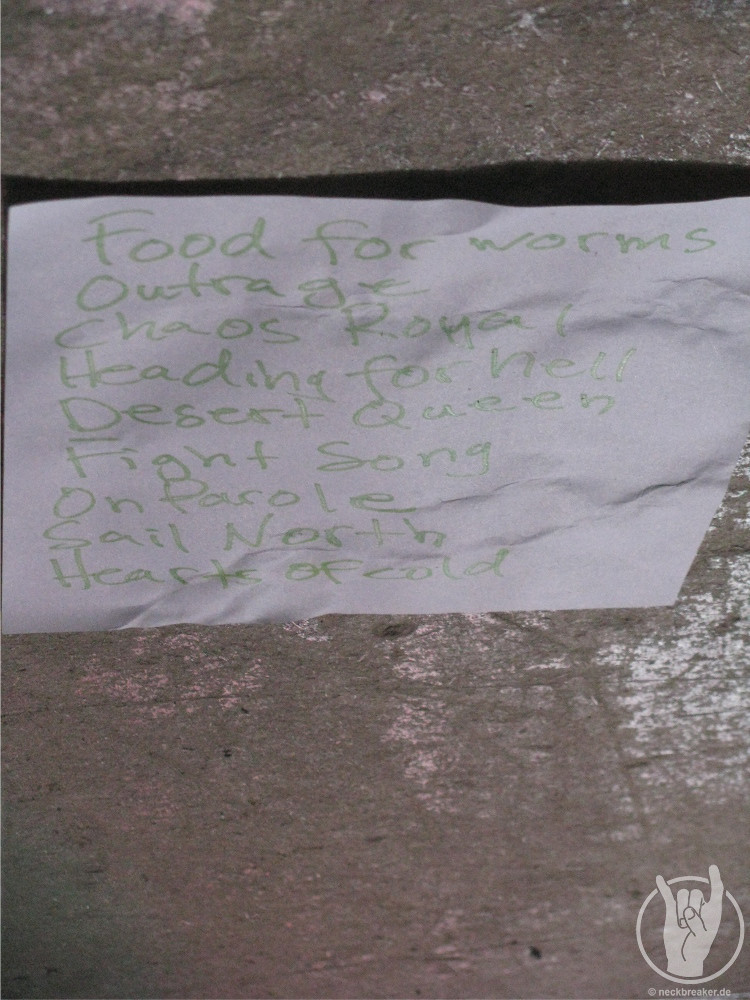 Food for worms
Outrage
Chaos Royal
Heading for hell
Desert Queen
Fight Song
On Parole
Sail North
Hearts of cold
© neckbreaker.de